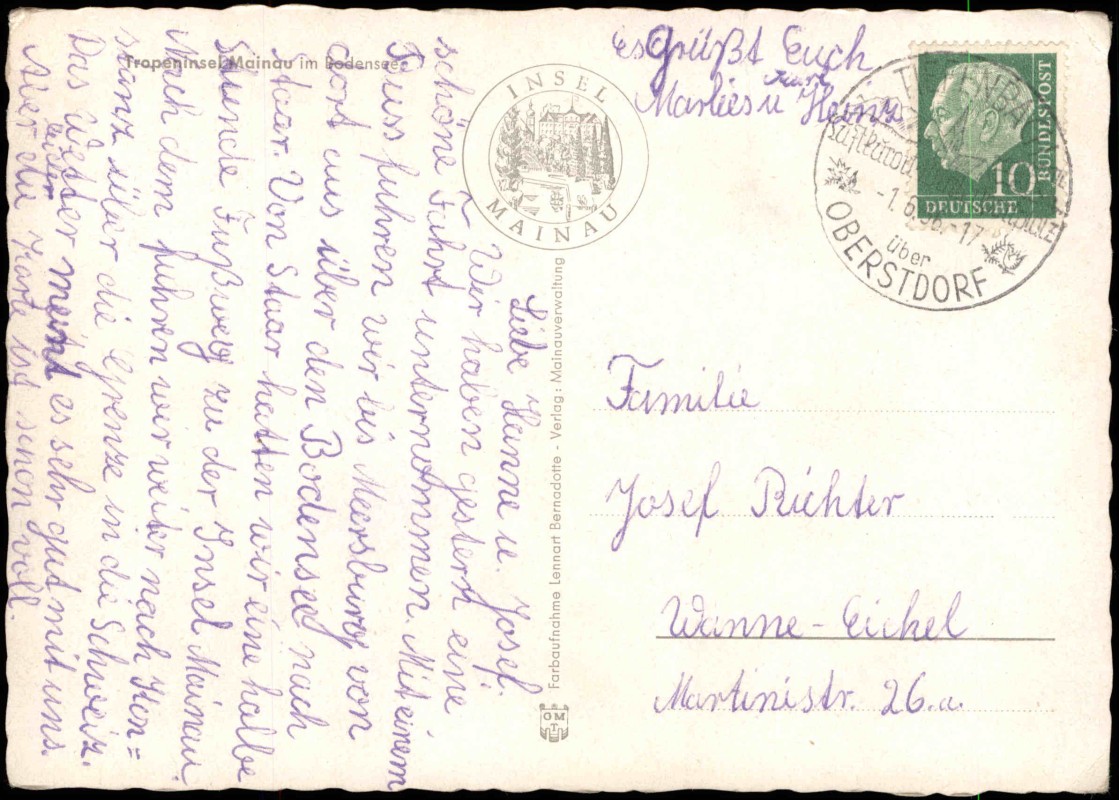 Tropeninsel Mainau im Bodensee
INSEL
MAINAU
Liebe Hanne u. Josef.
Wir haben gestern eine
schöne Fahrt unternommen. Mit einem
Buss fuhren wir bis Meersburg von
dort aus über den Bodensee nach
Staar. Von Staar hatten wir eine halbe
Stunde Fußweg zu der Insel Mainau.
Nach dem fuhren wir weiter nach Kon=
stanz über die Grenze in die Schweiz.
Das Wetter meint es sehr gut mit uns.
Aber leider die Karte ist schon voll.
Es Grüßt Euch
Marlies u Heinz
Farbaufnahme Lennart Bernadotte - Verlag: Mainauverwaltung
OMT
DEUTSCHE
BUNDESPOST
10
-1.6.56.-17
über
OBERSTDORF
Familie
Josef Richter
Wanne-Eickel
Martinistr. 26.a.